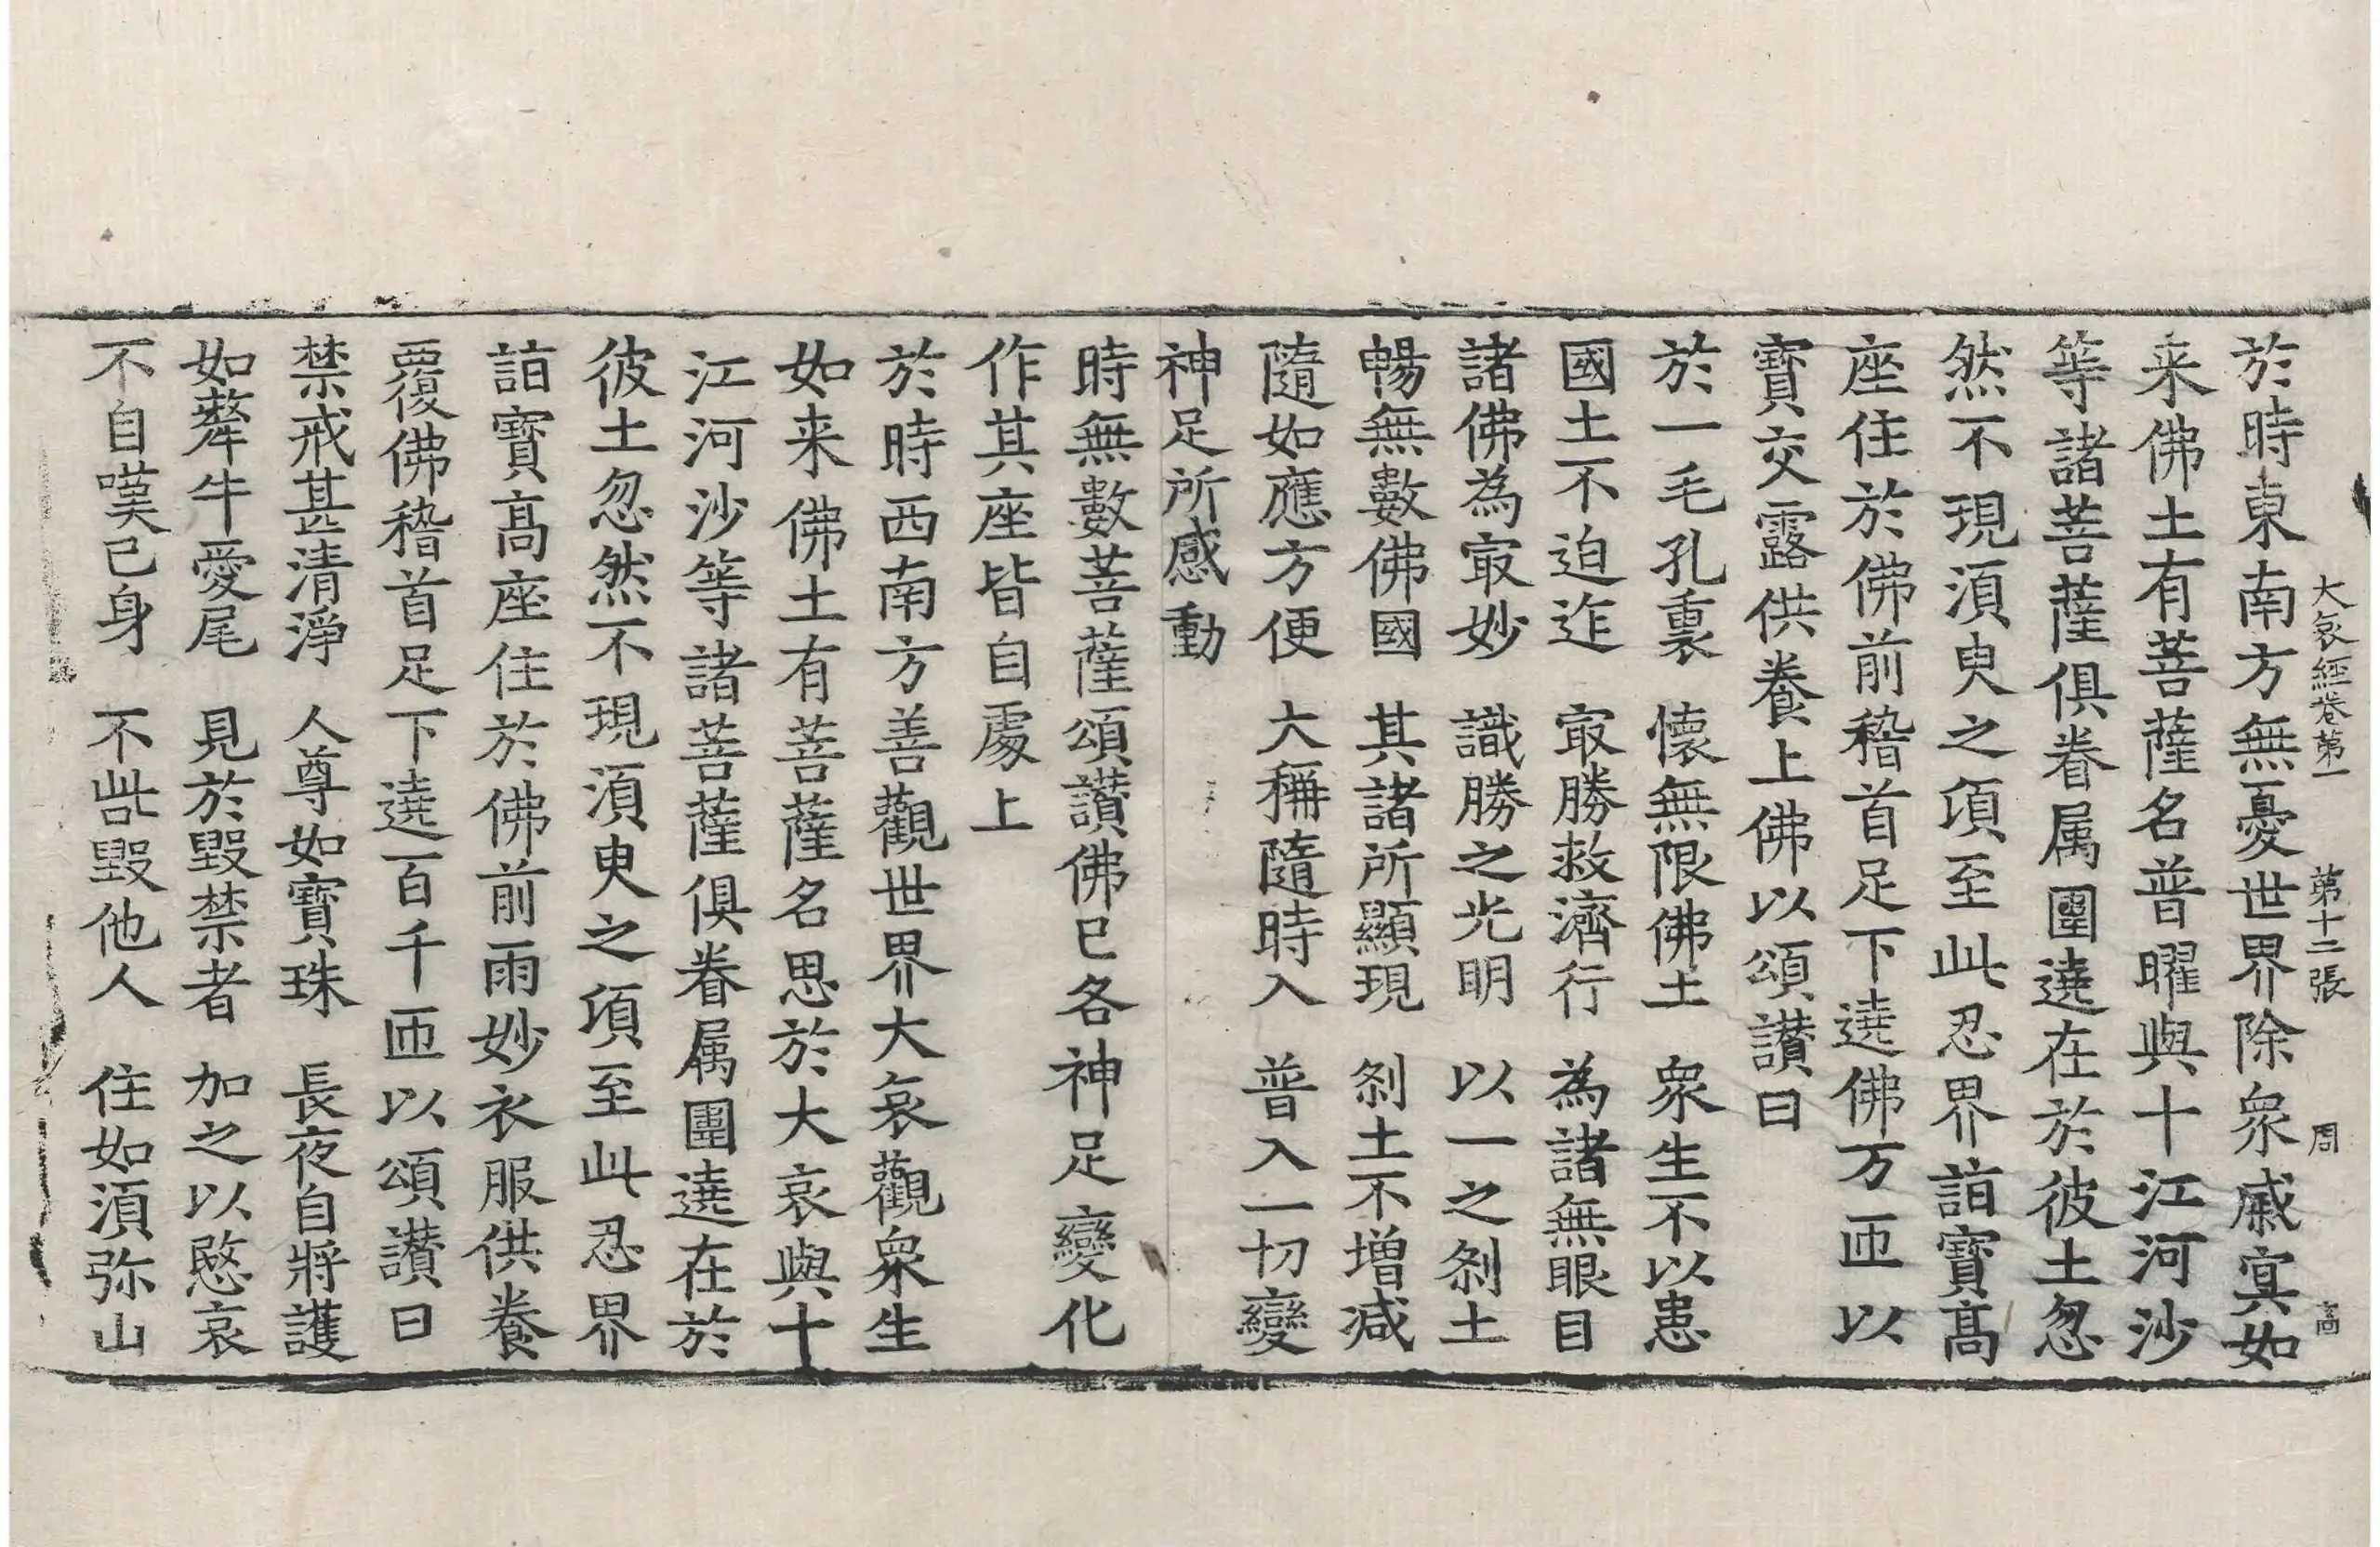 大哀經卷第一　第十二張　周　高
於時東南方無憂世界除衆戚冥如
来佛土有菩薩名普曜與十江河沙
等諸菩薩俱眷属圍遶在於彼土忽
然不現湏臾之頃至此忍界詣寶髙
座住於佛前稽首足下遶佛万匝以
寶交露供養上佛以頌讃曰
於一毛孔裏　懷無限佛土　衆生不以患
國土不迫迮　㝡勝救濟行　為諸無眼目
諸佛為㝡妙　識勝之光明　以一之刹土
暢無數佛國　其諸所顯現　刹土不增減
隨如應方便　大稱隨時入　普入一切變
神足所感動
時無數菩薩頌讃佛已各神足變化
作其座皆自處上
於時西南方善觀世界大哀觀衆生
如来佛土有菩薩名思於大哀與十
江河沙等諸菩薩俱眷属圍遶在於
彼土忽然不現湏臾之頃至此忍界
詣寶髙座住於佛前雨妙衣服供養
覆佛稽首足下遶百千匝以頌讃曰
禁戒甚清淨　人尊如寶珠　長夜自將護
如犛牛愛尾　見於毀禁者　加之以愍哀
不自嘆己身　不呰毀他人　住如湏弥山